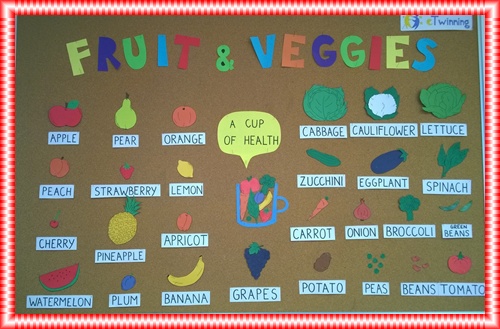 eTwinning
FRUIT & VEGGIES
A CUP
OF HEALTH
APPLE
PEAR
ORANGE
CABBAGE
CAULIFLOWER
LETTUCE
PEACH
STRAWBERRY
LEMON
ZUCCHINI
EGGPLANT
SPINACH
CHERRY
PINEAPPLE
APRICOT
CARROT
ONION
BROCCOLI
GREEN
BEANS
WATERMELON
PLUM
BANANA
GRAPES
POTATO
PEAS
BEANS
TOMATO